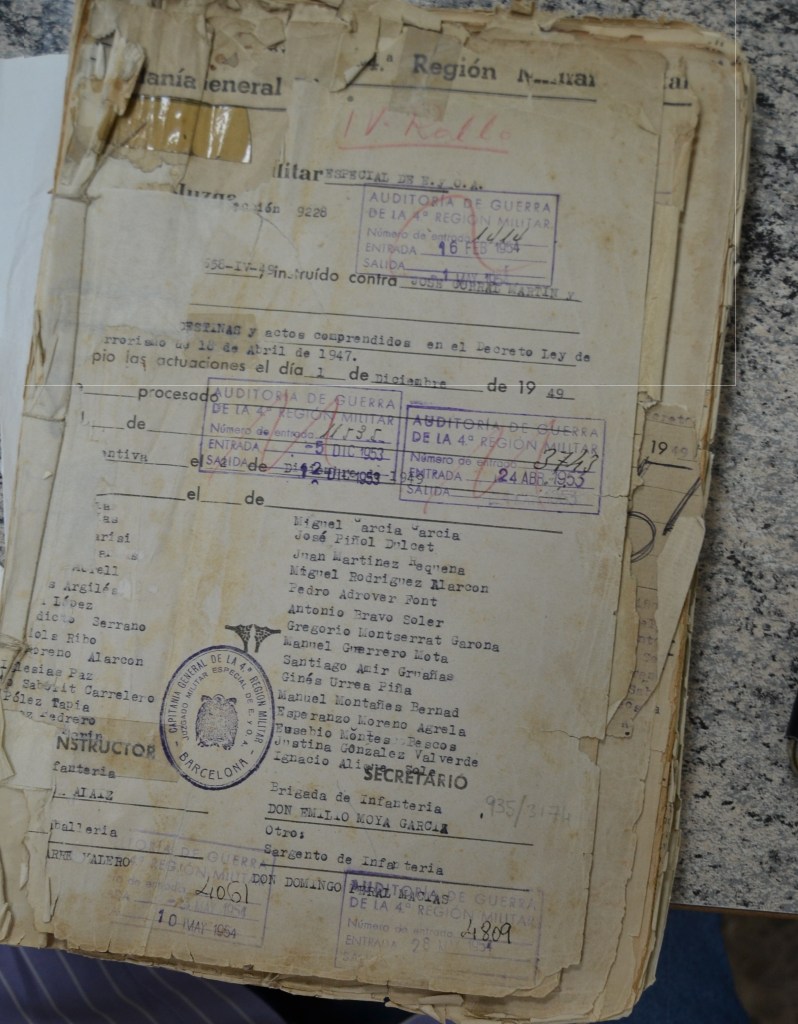 4.ª Región
anía General
IV-Rollo
litar ESPECIAL DE E. y O.A.
9228
AUDITORÍA DE GUERRA
DE LA 4ª REGIÓN MILITAR
Número de entrada
ENTRADA 16 FEB 1954
SALIDA
instruído contra JOSE CORRAL MARTIN y
DESTINAS y actos comprendidos en el Decreto Ley de
rrorismo de 18 de Abril de 1947.
pio las actuaciones el día 1 de Diciembre de 19 49
procesado
AUDITORÍA DE GUERRA
DE LA 4ª REGIÓN MILITAR
Número de entrada
ENTRADA -5 DIC 1953
SALIDA 12 DIC 1953
AUDITORÍA DE GUERRA
DE LA 4ª REGIÓN MILITAR
Número de entrada 3748
ENTRADA 24 ABR. 1953
SALIDA
de
entiva el de 1949
el de
19 49
Miguel Garcia Garcia
José Piñol Dulcet
Juan Martinez Requena
Miguel Rodriguez Alarcon
Pedro Adrover Font
Antonio Bravo Soler
Gregorio Montserrat Garona
Manuel Guerrero Mota
Santiago Amir Gruañas
Ginés Urrea Piña
Manuel Montañes Bernad
Esperanzo Moreno Agrela
Eusebio Montes Bescos
Justina Gónzalez Valverde
Ignacio
s Argilés
López
Serrano
iols Ribo
oreno Alarcon
glesias Paz
Saborit Carrelero
Pólez Tapia
ez Pedrero
CAPITANÍA GENERAL DE LA 4.ª REGION MILITAR
JUZGADO MILITAR ESPECIAL DE E. Y O. A.
BARCELONA
NSTRUCTOR
SECRETARIO
fanteria
Brigada de Infanteria
935/3174
DON EMILIO MOYA GARCIA
Otro:
balleria
Sargento de Infanteria
VALERO
DON DOMINGO PERAL MACIAS
4061
10 MAY 1954
AUDITORÍA DE GUERRA
DE LA 4ª REGIÓN MILITAR
Número de entrada 4809
ENTRADA 28 1954